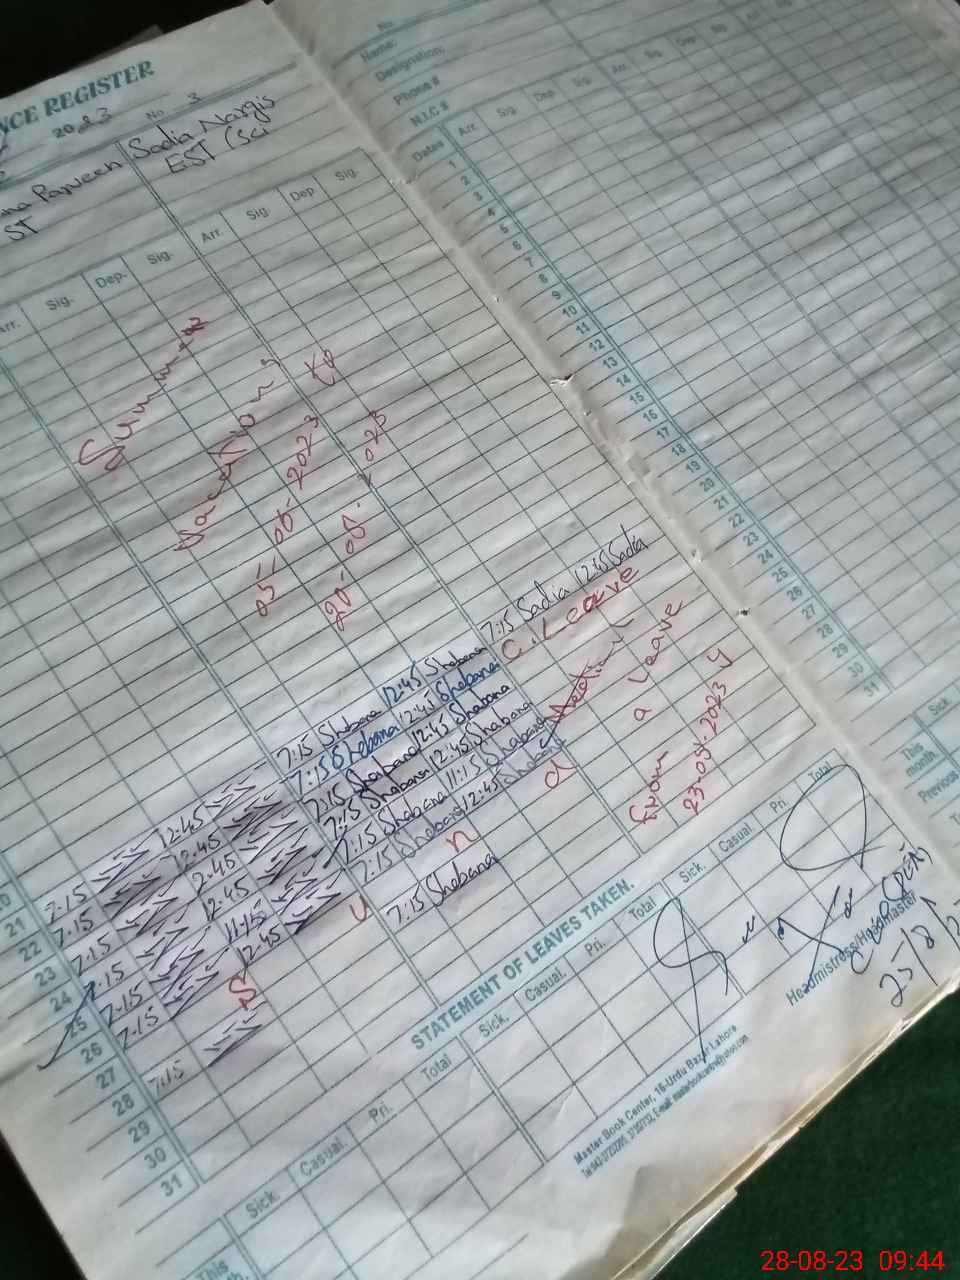 NCE REGISTER
2023 No 3
Parveen Sadia Nargis
ST EST (Sci
Arr. Sig. Dep. Sig. Arr. Sig. Dep Sig.
Summer
Vacations
05-06-2023 to
20-08-2023
20
21 7:15 12:45 7:15 Shabana 12:45 Shabana 7:15 Sadia 12:45 Sadia
22 7:15 12:45 7:15 Shabana 12:45 Shabana C. Leave
23 7:15 12:45 7:15 Shabana 12:45 Shabana Medical
24 7:15 12:45 7:15 Shabana 12:45 Shabana a Leave
25 7:15 11:15 7:15 Shabana 11:15 Shabana From
26 7:15 12:45 7:15 Shabana 12:45 Shabana 23-08-2023
27 S u n d
28 7:15 7:15 Shabana
29
30
31
STATEMENT OF LEAVES TAKEN.
Sick. Casual. Pri. Total Sick. Casual. Pri. Total Sick. Casual. Pri. Total
This
Headmistress/Headmaster
25/8/
Master Book Center, 16-Urdu Bazar Lahore.
No.
Name:
Designation:
Phone #
N.I.C #
Dates Arr. Sig. Dep. Sig. Arr. Sig. Dep Sig. Arr. Sig.
1
2
3
4
5
6
7
8
9
10
11
12
13
14
15
16
17
18
19
20
21
22
23
24
25
26
27
28
29
30
31
Sick
This month
Previous
28-08-23 09:44